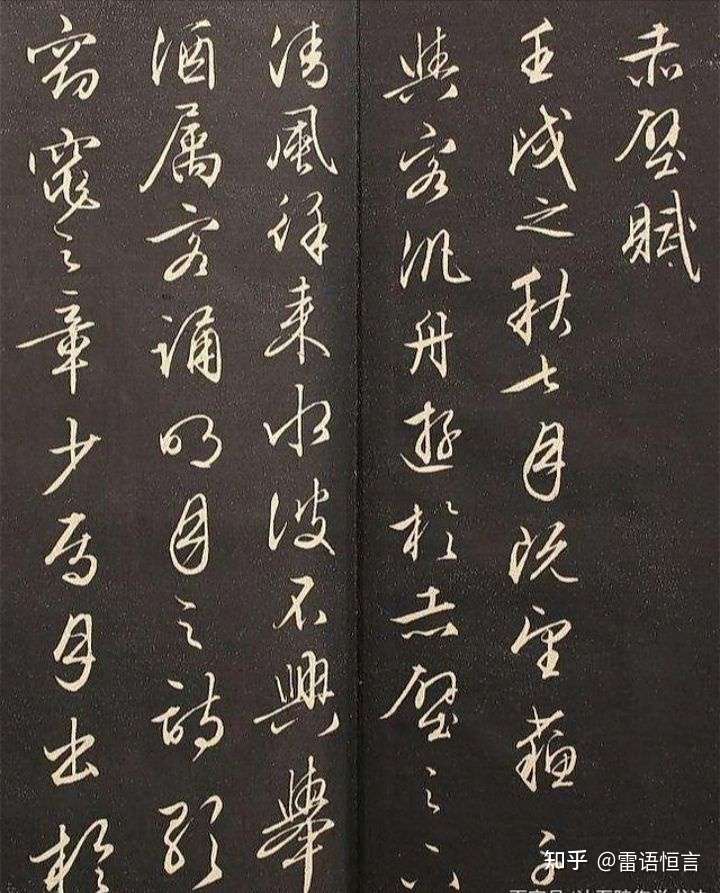 赤壁賦
壬戌之秋七月既望蘇子
與客汎舟遊於赤壁之下
清風徐來水波不興舉
酒属客誦明月之詩歌
窈窕之章少焉月出於
知乎 @雷语恒言